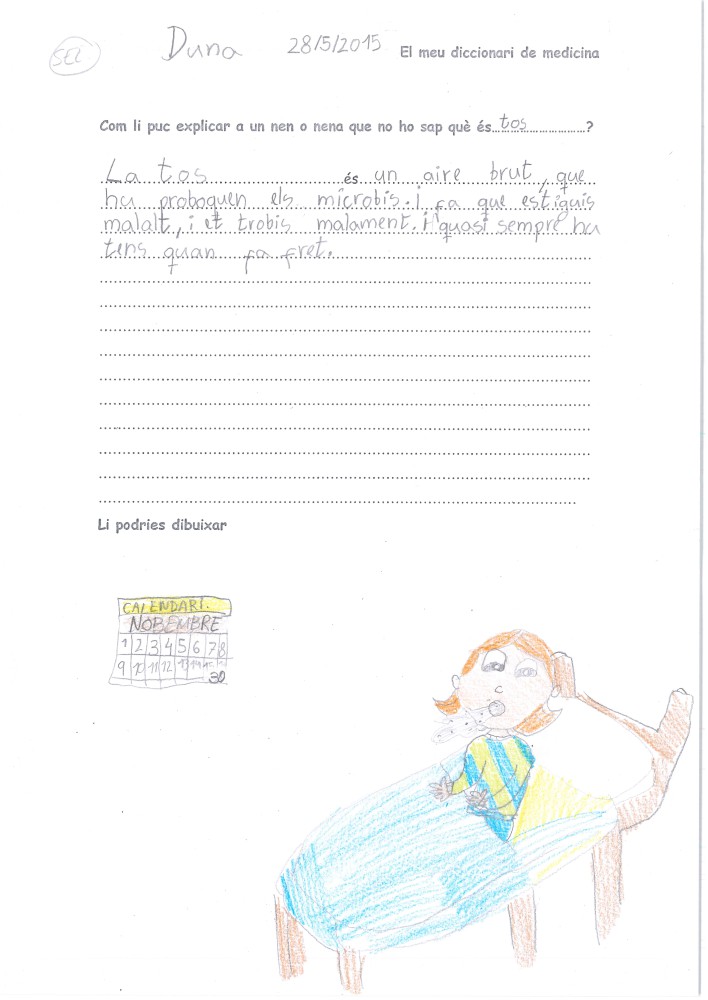 SEL
Duna 28/5/2015 El meu diccionari de medicina
Com li puc explicar a un nen o nena que no ho sap què és tos ?
La tos és un aire brut, que
hu proboquen els microbis. i fa que estiguis
malalt, i et trobis malament. i quasi sempre hu
tens quan fa fret.
Li podries dibuixar
CALENDARI.
NOBEMBRE
1 2 3 4 5 6 7 8
9 10 11 12 13 14
30